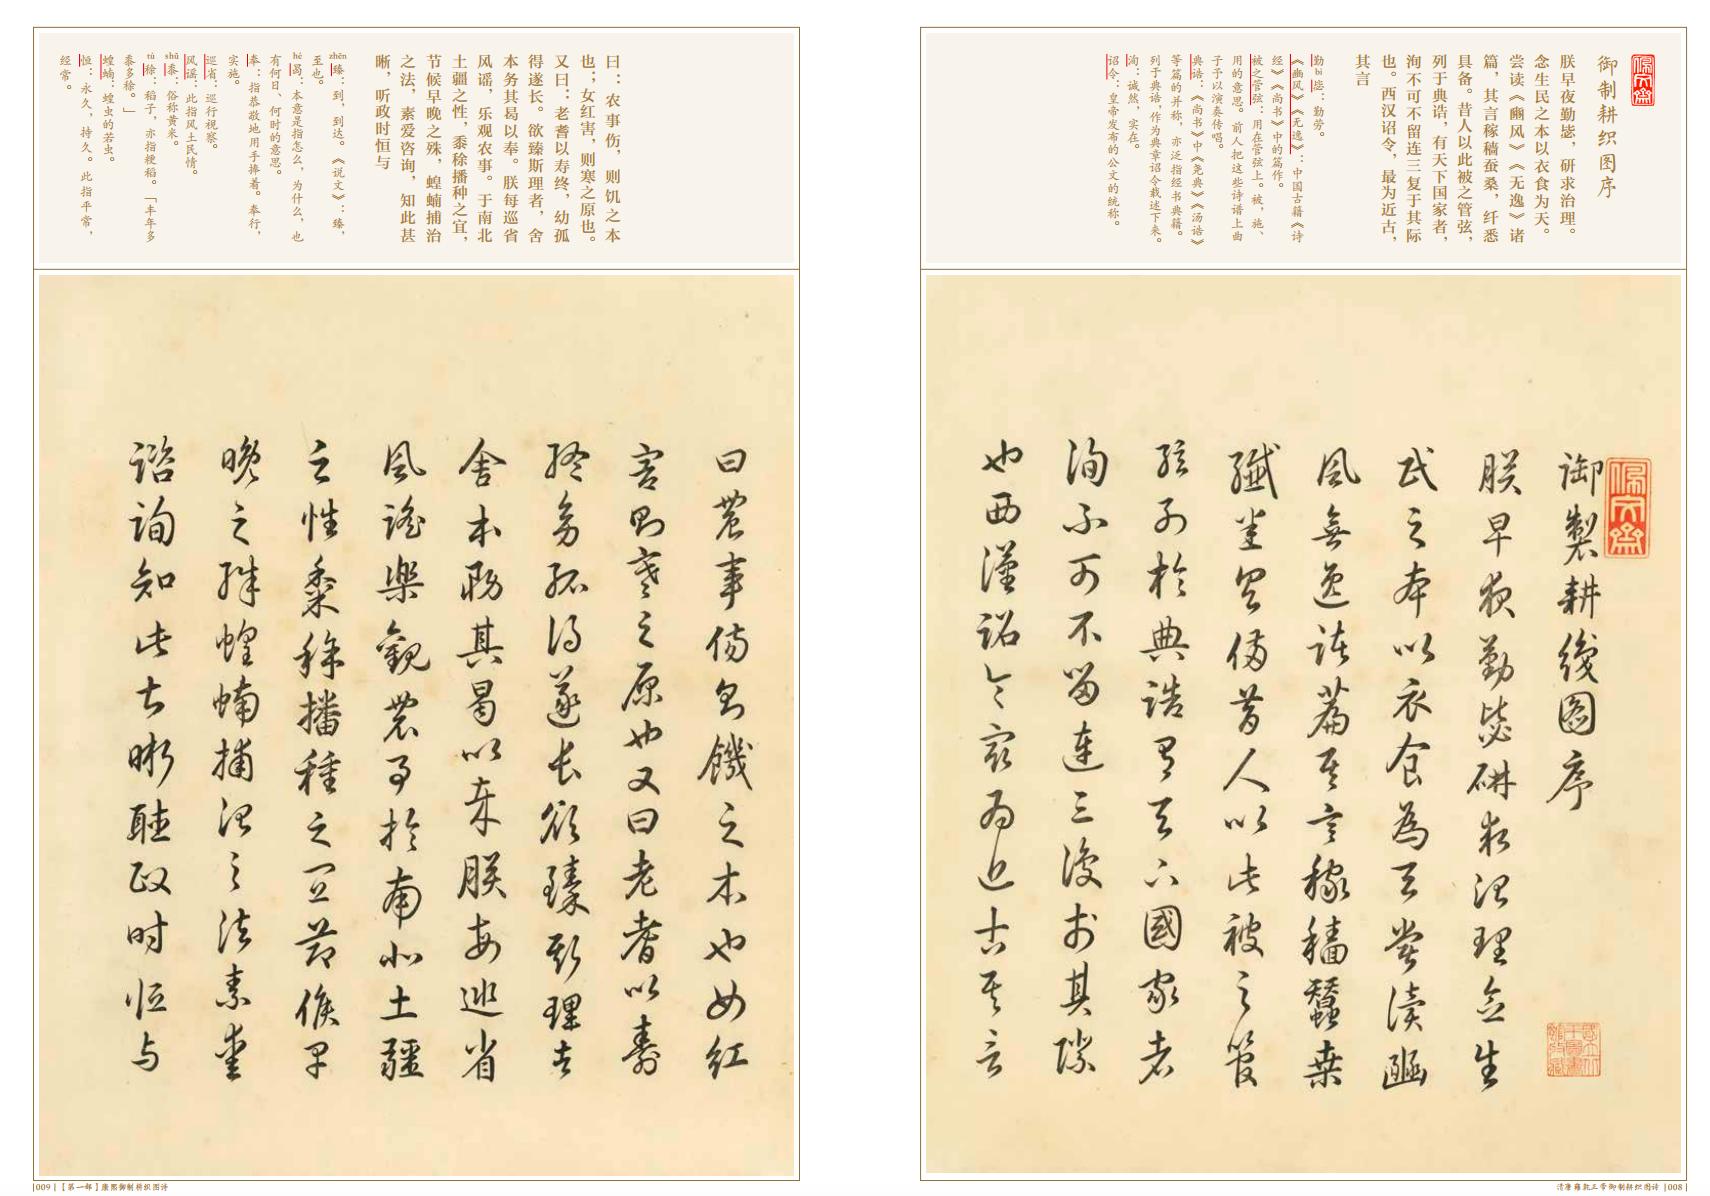 佩文斋
御制耕织图序
朕早夜勤毖，研求治理。
念生民之本以衣食为天。
尝读《豳风》《无逸》诸
篇，其言稼穑蚕桑，纤悉
具备。昔人以此被之管弦，
列于典诰，有天下国家者，
洵不可不留连三复于其际
也。西汉诏令，最为近古，
其言
勤毖：勤劳。
bì
《豳风》《无逸》：中国古籍《诗
经》《尚书》中的篇作。
被之管弦：用在管弦上。被，施、
用的意思。前人把这些诗谱上曲
子予以演奏传唱。
典诰：《尚书》中《尧典》《汤诰》
等篇的并称，亦泛指经书典籍。
列于典诰，作为典章诏令载述下来。
洵：诚然，实在。
诏令：皇帝发布的公文的统称。
佩文齋
御製耕織圖序
朕早夜勤毖研求治理念生
民之本以衣食為天嘗讀豳
風無逸諸篇其言稼穡蠶桑
纖悉具備昔人以此被之管
弦列於典誥有天下國家者
洵不可不留連三復於其際
也西漢詔令最為近古其言
清康雍乾三帝御制耕织图诗 |008|
曰：农事伤，则饥之本
也；女红害，则寒之原也。
又曰：老耆以寿终，幼孤
得遂长。欲臻斯理者，舍
本务其曷以奉。朕每巡省
风谣，乐观农事。于南北
土疆之性，黍稌播种之宜，
节候早晚之殊，蝗蝻捕治
之法，素爱咨询，知此甚
晰，听政时恒与
zhēn
臻：到，到达。《说文》：臻，
至也。
hé
曷：本意是指怎么，为什么，也
有何日、何时的意思。
奉：指恭敬地用手捧着。奉行，
实施。
巡省：巡行视察。
风谣：此指风土民情。
shǔ
黍：俗称黄米。
tú
稌：稻子，亦指粳稻。「丰年多
黍多稌。」
蝗蝻：蝗虫的若虫。
恒：永久，持久。此指平常，
经常。
曰農事傷則饑之本也女紅
害則寒之原也又曰老耆以壽
終幼孤得遂長欲臻斯理者
舍本務其曷以奉朕每巡省
風謠樂觀農事於南北土疆
之性黍稌播種之宜節候早
晚之殊蝗蝻捕治之法素愛
諮詢知此甚晰聽政時恒與
|009|【第一部】康熙御制耕织图诗